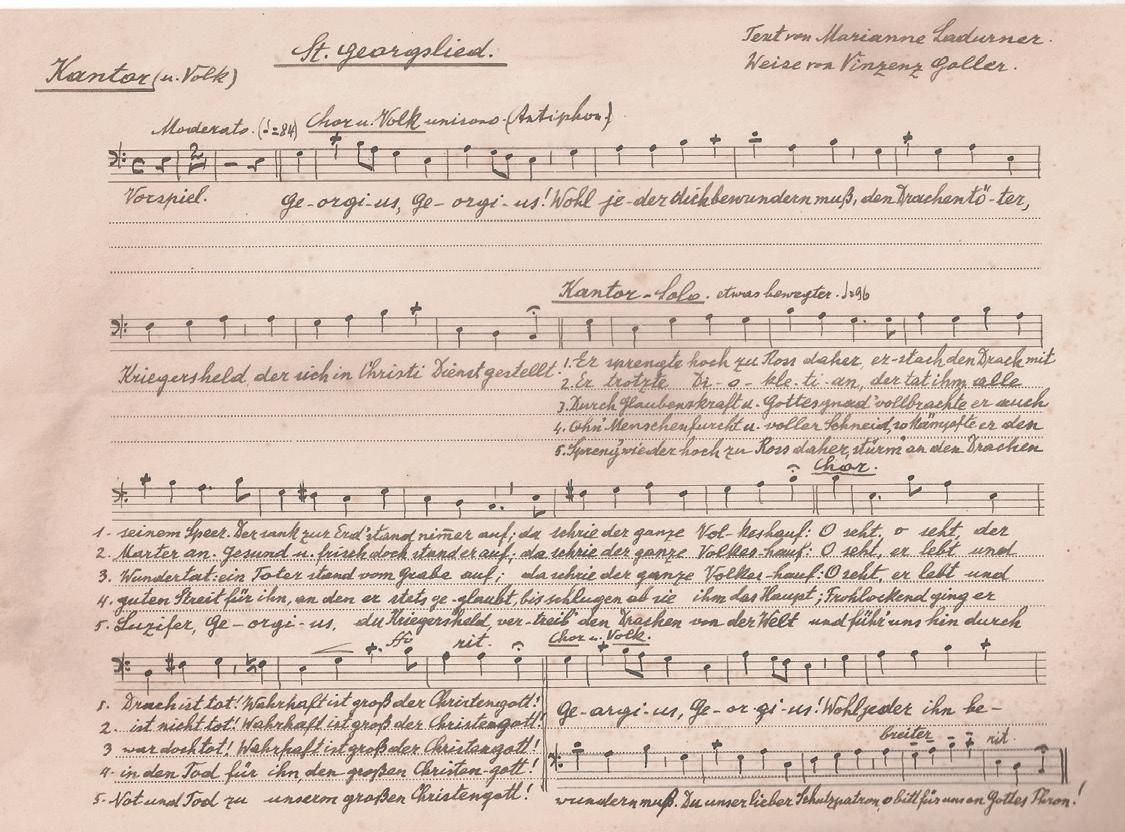 St. Georgslied.
Text von Marianne Ladurner.
Weise von Vinzenz Goller.
Kantor (u. Volk)
Moderato. (♩=84) Chor u. Volk unisono (Antiphon)
2
Vorspiel. Ge-orgi-us, Ge-orgi-us! Wohl je-der dich bewundern muß, den Drachentö-ter,
Kantor-Solo. etwas bewegter. ♩=96
Kriegersheld, der sich in Christi Dienst gestellt.
1. Er sprengte hoch zu Ross daher, er-stach den Drach mit
2. Er trotzte Di-o-kle-ti-an, der tat ihm alle
3. Durch Glaubenskraft u. Gottesgnad' vollbrachte er auch
4. Ohn' Menschenfurcht u. voller Schneid, so kämpfte er den
5. Spreng' wieder hoch zu Ross daher, stürm' an den Drachen
Chor.
1. seinem Speer. Der sank zur Erd' stand nim̄er auf; da schrie der ganze Vol-keshauf: O seht, o seht, der
2. Marter an. Gesund u. frisch doch stand er auf; da schrie der ganze Volkes-hauf: O seht, er lebt und
3. Wundertat: ein Toter stand vom Grabe auf; da schrie der ganze Volkes-hauf: O seht, er lebt und
4. guten Streit für ihn, an den er stets ge-glaubt, bis schlugen ab sie ihm das Haupt; Frohlockend ging er
5. Luzifer, Ge-orgi-us, du Kriegersheld, ver-treib den Drachen von der Welt und führ' uns hin durch
ff rit. Chor u. Volk.
1. Drach ist tot! Wahrhaft ist groß der Christengott!
2. ist nicht tot! Wahrhaft ist groß der Christengott!
3 war doch tot! Wahrhaft ist groß der Christengott!
4. in den Tod für ihn, den großen Christen-gott!
5. Not und Tod zu unserm großen Christengott!
Ge-orgi-us, Ge-or-gi-us! Wohl jeder ihn be-
breiter rit.
wundern muß. Du unser lieber Schutzpatron, o bitt für uns an Gottes Thron!